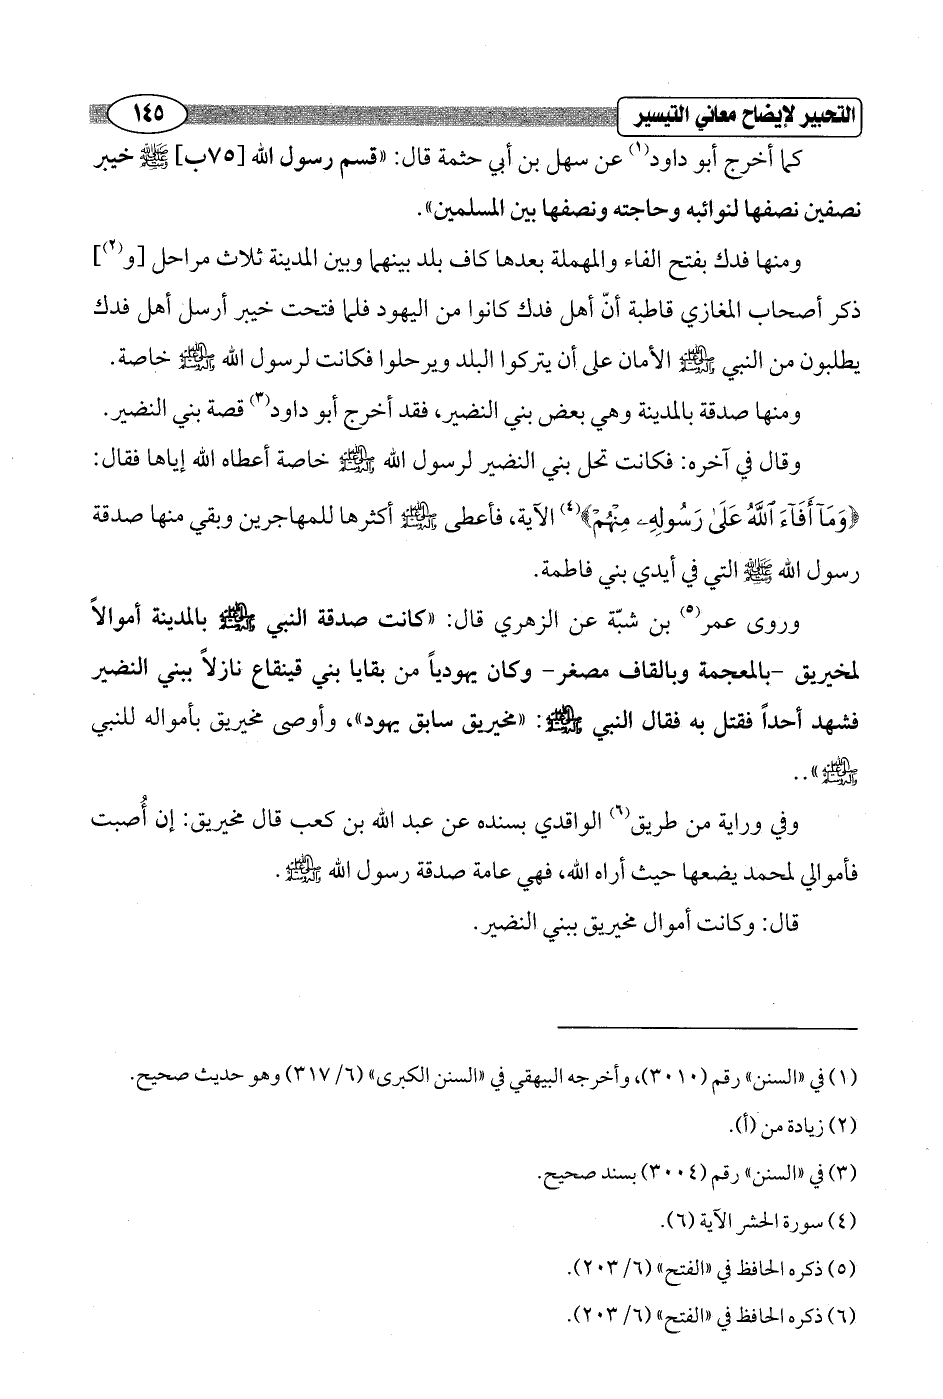 التحبير لإيضاح معاني التيسير ١٤٥
كما أخرج أبو داود(١) عن سهل بن أبي حثمة قال: «قسم رسول الله [٧٥ب] ﷺ خيبر
نصفين نصفها لنوائبه وحاجته ونصفها بين المسلمين».
ومنها فدك بفتح الفاء والمهملة بعدها كاف بلد بينهما وبين المدينة ثلاث مراحل [و(٢)]
ذكر أصحاب المغازي قاطبة أنّ أهل فدك كانوا من اليهود فلما فتحت خيبر أرسل أهل فدك
يطلبون من النبي ﷺ الأمان على أن يتركوا البلد ويرحلوا فكانت لرسول الله ﷺ خاصة.
ومنها صدقة بالمدينة وهي بعض بني النضير، فقد أخرج أبو داود(٣) قصة بني النضير.
وقال في آخره: فكانت تحل بني النضير لرسول الله ﷺ خاصة أعطاه الله إياها فقال:
﴿وَمَآ أَفَآءَ ٱللَّهُ عَلَىٰ رَسُولِهِۦ مِنْهُمْ﴾(٤) الآية، فأعطى ﷺ أكثرها للمهاجرين وبقي منها صدقة
رسول الله ﷺ التي في أيدي بني فاطمة.
وروى عمر(٥) بن شبّة عن الزهري قال: «كانت صدقة النبي ﷺ بالمدينة أموالاً
لمخيريق -بالمعجمة وبالقاف مصغر- وكان يهودياً من بقايا بني قينقاع نازلاً ببني النضير
فشهد أحداً فقتل به فقال النبي ﷺ: «مخيريق سابق يهود»، وأوصى مخيريق بأمواله للنبي
ﷺ»..
وفي وراية من طريق(٦) الواقدي بسنده عن عبد الله بن كعب قال مخيريق: إن أُصبت
فأموالي لمحمد يضعها حيث أراه الله، فهي عامة صدقة رسول الله ﷺ.
قال: وكانت أموال مخيريق ببني النضير.
(١) في «السنن» رقم (٣٠١٠)، وأخرجه البيهقي في «السنن الكبرى» (٦/ ٣١٧) وهو حديث صحيح.
(٢) زيادة من (أ).
(٣) في «السنن» رقم (٣٠٠٤) بسند صحيح.
(٤) سورة الحشر الآية (٦).
(٥) ذكره الحافظ في «الفتح» (٦/ ٢٠٣).
(٦) ذكره الحافظ في «الفتح» (٦/ ٢٠٣).